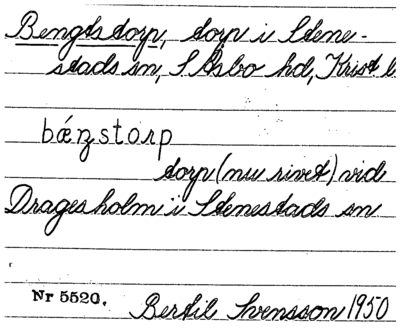 Bengtstorp, torp i Stene-
stads sn, S Åsbo hd, Krist l
bǽŋstorp
torp (nu rivet) vid
Dragesholm i Stenestads sn
Nr 5520. Bertil Svensson 1950